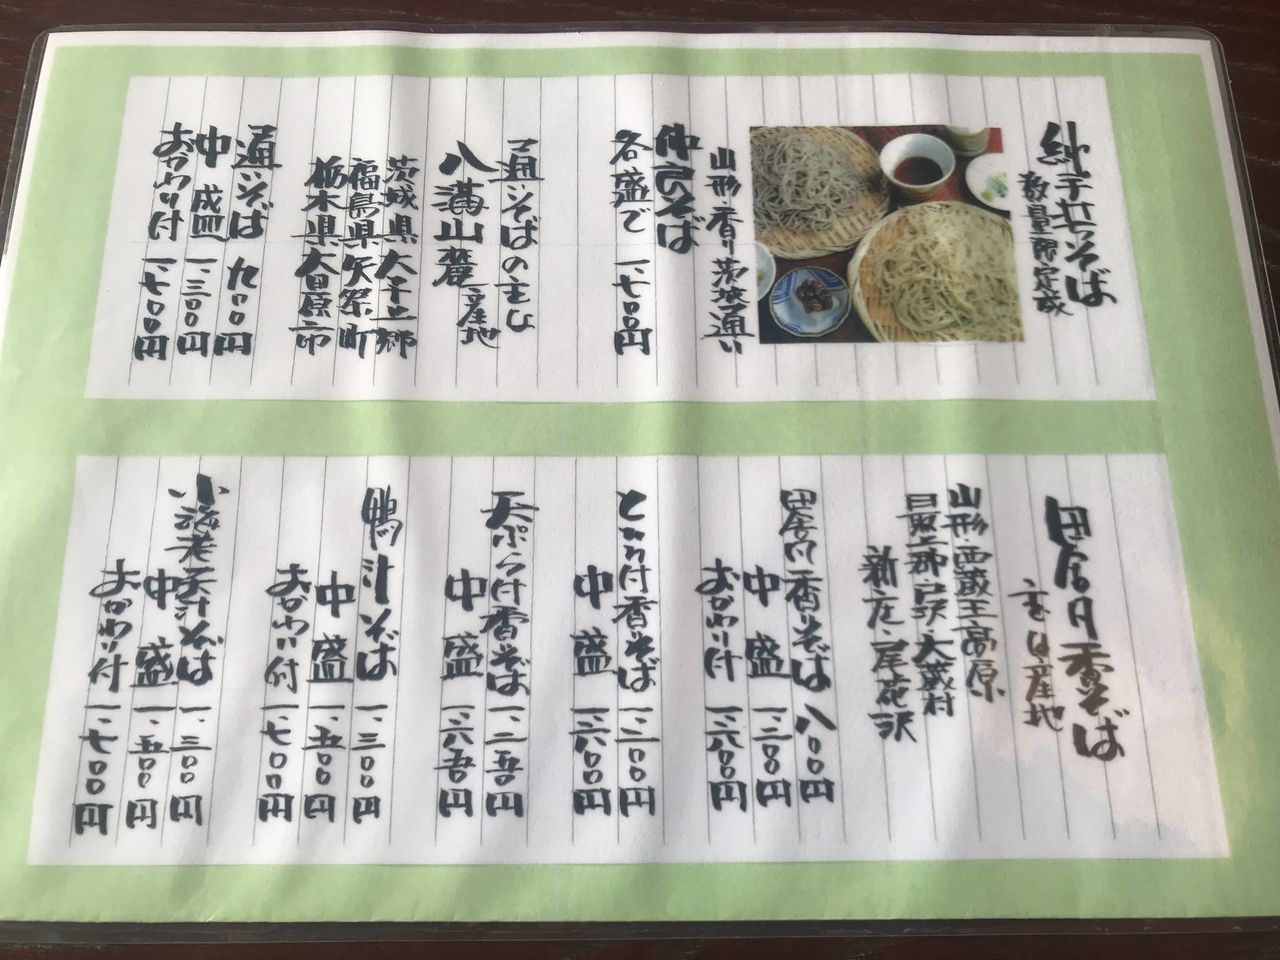 数量限定
山形香り茨城通い
仲良そば
各盛で 一、七〇〇円
通いそばの主な
八溝山麓 産地
茨城県大子町
福島県矢祭町
栃木県大田原市
通いそば 九〇〇円
中盛 一、三〇〇円
おかわり付 一、七〇〇円
田舎付香そば
主な産地
山形・西蔵王高原
最上郡戸沢・大蔵村
新庄・尾花沢
田舎付香りそば 八〇〇円
中盛 一、二〇〇円
おかわり付 一、六〇〇円
とろろ付香りそば 一、二〇〇円
中盛 一、六〇〇円
天ぷら付香そば 一、二五〇円
中盛 一、六五〇円
鴨汁そば 一、三〇〇円
中盛 一、五〇〇円
おかわり付 一、七〇〇円
小海老天汁そば 一、三〇〇円
中盛 一、五〇〇円
おかわり付 一、七〇〇円